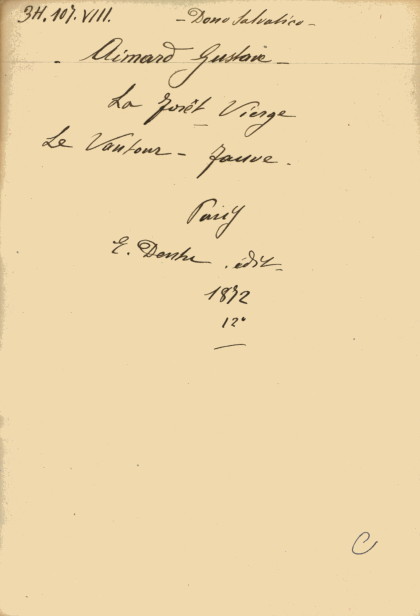 3H.107.VIII. - Dono Salvatico -
- Aimard Gustave -
La Forêt Vierge
Le Vautour - Fauve.
Parij
E. Dentu. édit.
1872
12°
C